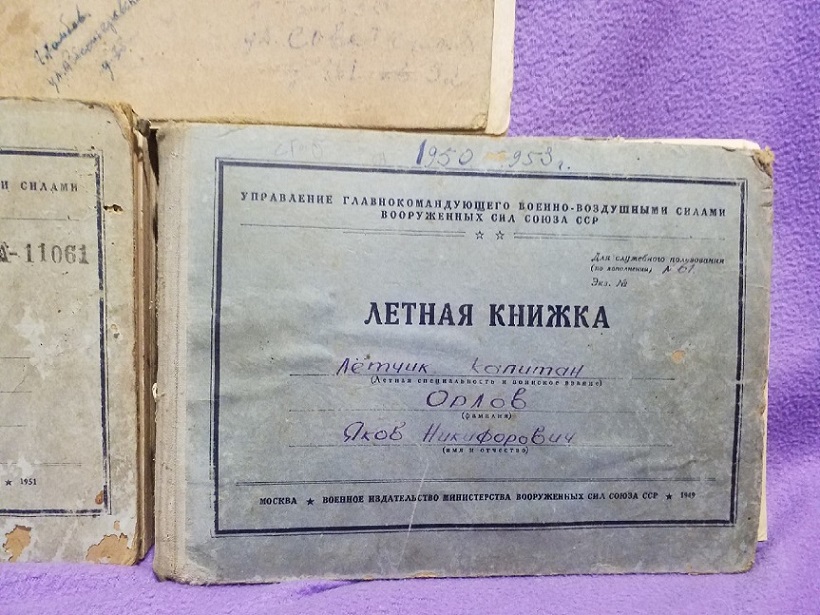 ул. Сова
И СИЛАМИ
А-11061
★ 1951
1950 - 953 г.
УПРАВЛЕНИЕ ГЛАВНОКОМАНДУЮЩЕГО ВОЕННО-ВОЗДУШНЫМИ СИЛАМИ
ВООРУЖЕННЫХ СИЛ СОЮЗА ССР
☆ ☆
Для служебного пользования
(по заполнении) А 61
Экз. №
ЛЕТНАЯ КНИЖКА
Лётчик капитан
(Летная специальность и воинское звание)
Орлов
(фамилия)
Яков Никифорович
(имя и отчество)
МОСКВА ★ ВОЕННОЕ ИЗДАТЕЛЬСТВО МИНИСТЕРСТВА ВООРУЖЕННЫХ СИЛ СОЮЗА ССР ★ 1949